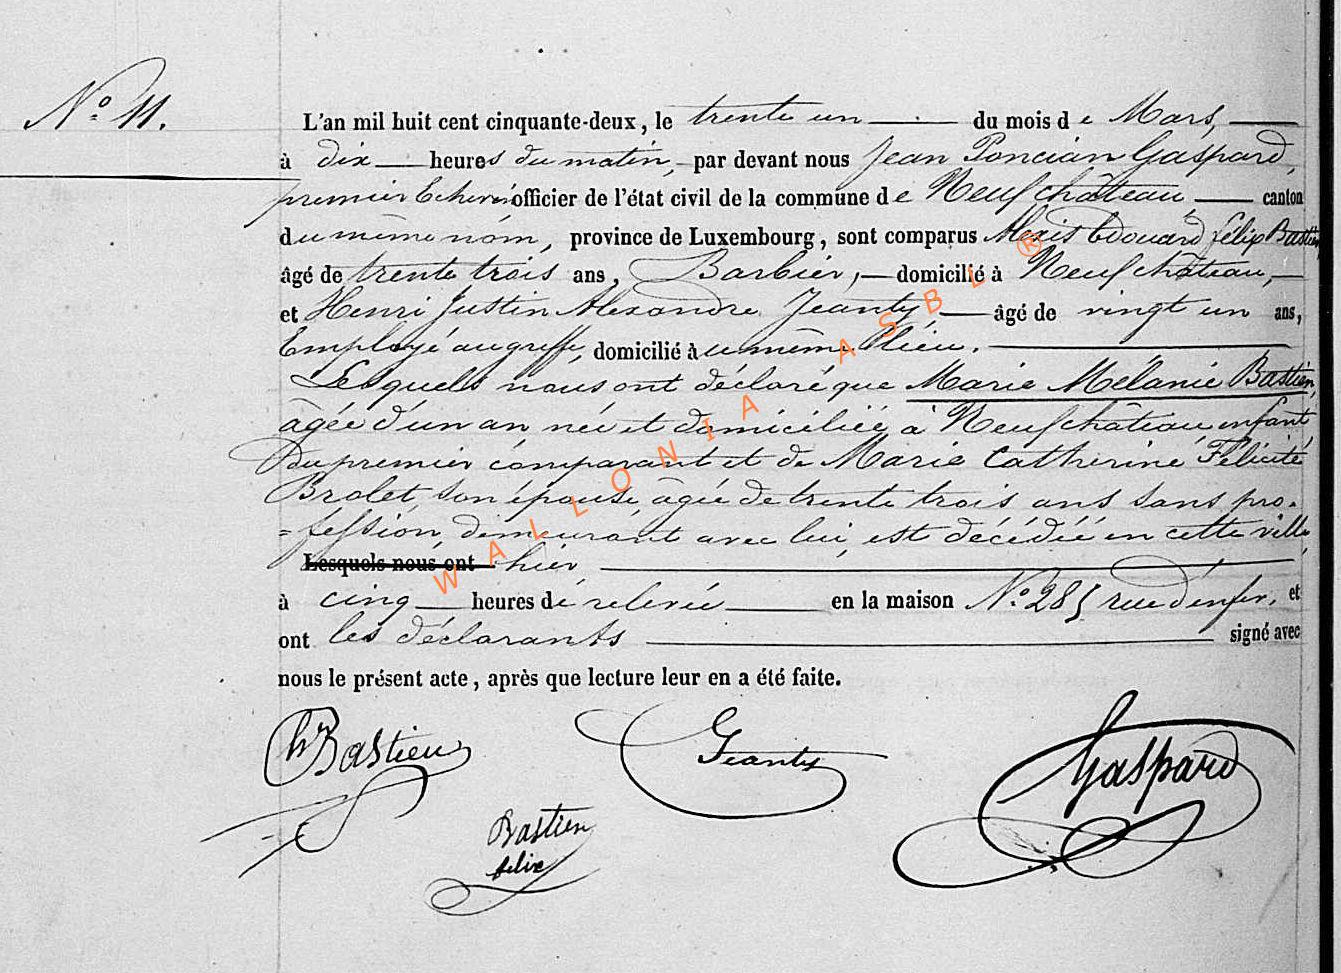 N.° 11.
L'an mil huit cent cinquante-deux, le trente un du mois de Mars,
à dix heures du matin, par devant nous Jean Poncian Gaspard,
premier Echevin officier de l'état civil de la commune de Neufchâteau canton
du même nom, province de Luxembourg, sont comparus Alexis Edouard félix Bastien
âgé de trente trois ans, Barbier, domicilié à Neufchâteau,
et Henri Justin Alexandre Jeanty âgé de vingt un ans,
Employé au greffe, domicilié au même lieu.
Lesquels nous ont déclaré que Marie Mélanie Bastien,
âgée d'un an née et domiciliée à Neufchâteau enfant
du premier comparant et de Marie Catherine Félicité
Brolet, son épouse, âgée de trente trois ans sans pro-
=fession, demeurant avec lui, est décédée en cette ville
Lesquels nous ont hier
à cinq heures de relevée en la maison N.° 285 rue d'enfer, et
ont les déclarants signé avec
nous le présent acte, après que lecture leur en a été faite.
Bastien Geanty Gaspard
Bastien
felix
WALLONIA ASBL ®